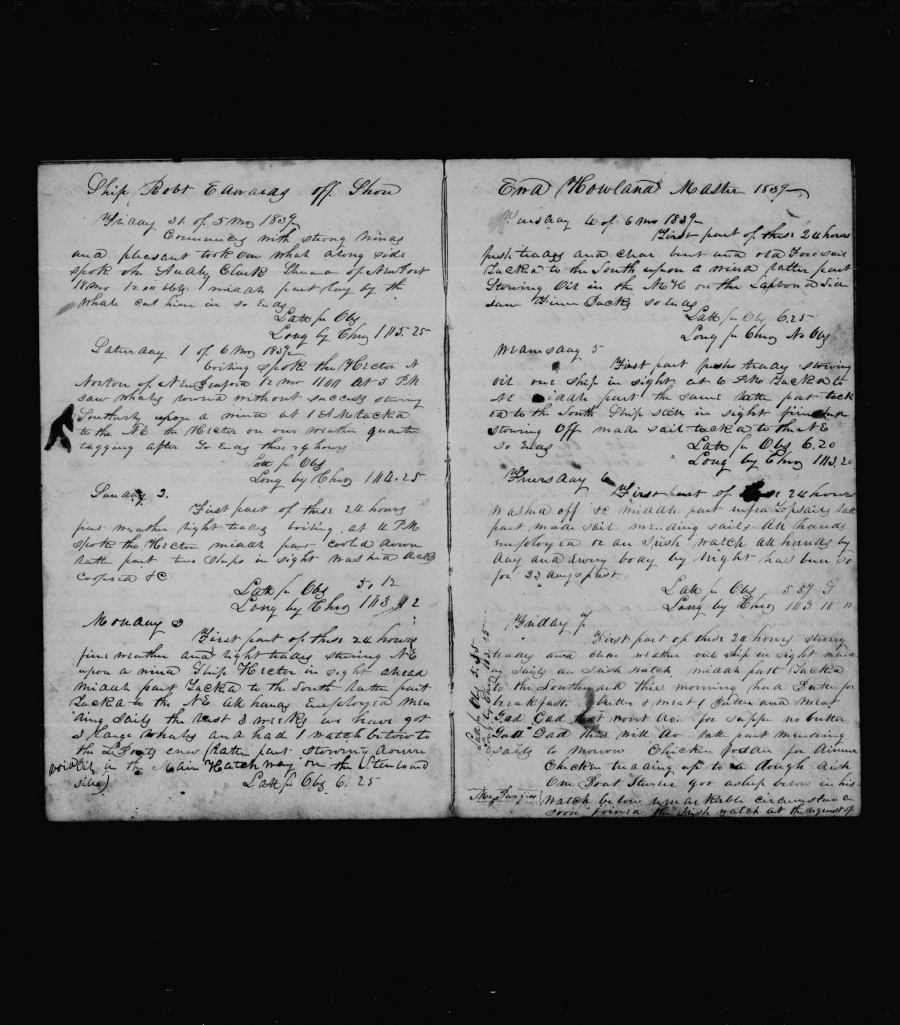 Ship Robt Edwards off Shore
Friday 31 of 5 mo 1839
Commences with strong winds
and pleasant took our whale along side
spoke the Audley Clark of Newport
18 mo 1200 bbls middle part lay by the
whale cut him in so Ends
Latt pr Obs
Long by Chro 113.25
Saturday 1 of 6 mo 1839
boiling spoke the Hector
Norton of New Bedford 12 mo 1100 at 5 PM
saw whales lowered without success
Southerly upon a wind at 1 AM tacked
to the NE the Hector on our weather quarter
tagging after So Ends the 24 hours
Latt pr Obs
Long by Chro 114.25
Sunday 2.
First part of these 24 hours
fine weather light trades boiling at 4 PM
spoke the Hector middle part cooled down
latter part two Ships in sight washed decks
coopered &c
Latt pr Obs 5.12
Long by Chro 113 12
Monday 3
First part of these 24 hours
fine weather and light trades NE
upon a wind Ship Hector in sight ahead
middle part Tacked to the South latter part
Tacked to the NE all hands Employed in men
ding sails the last 3 weeks we have got
3 large whales and had 1 watch below to
the crew (latter part stowing down
oil in the Main Hatchway on the Starboard
side)
Latt pr Obs 6.25
Master 1839
4 of 6 mo 1839
First part of these 24 hours
fresh trades and clear bent and old Fore sail
Tacked to the South upon a wind latter part
Stowing Oil in the M H on the Larboard Side
so Ends
Latt pr Obs 6.25
Long pr Chro No Obs
Wednesday 5
First part fresh trades stowing
oil one ship in sight at 6 PM Tacked to
NE middle part the same latter part tack
ed to the South Ship still in sight finished
stowing Off made sail tacked to the NE
so Ends Latt pr Obs 6.20
Long by Chro 113.20
Thursday 6
First part of these 24 hours
washed off &c middle part Topsails latt
part made sail mending sails All hands
employed on an Irish watch all hands by
day and Every body by Night has been so
for 22 days past
Latt pr Obs 5.57 S
Long by Chro 113 10
Friday 7
First part of these 24 hours strong
trades and clear weather one ship in sight mend
ing sails an Irish watch middle part Tacked
to the Southward this morning had Butter for
breakfast butter & meat / Butter and meat
Gad Gad that wont do for supper no butter
Gad Gad this will do latt part mending
sails to morrow Chicken fodder for dinner
Chicken treading up to a dough dish
One Boat Steerer got asleep below in his
watch below remarkable circumstance
soon joined the Irish watch at the request of
Latt pr Obs 5.35
Long by Chro 112.15